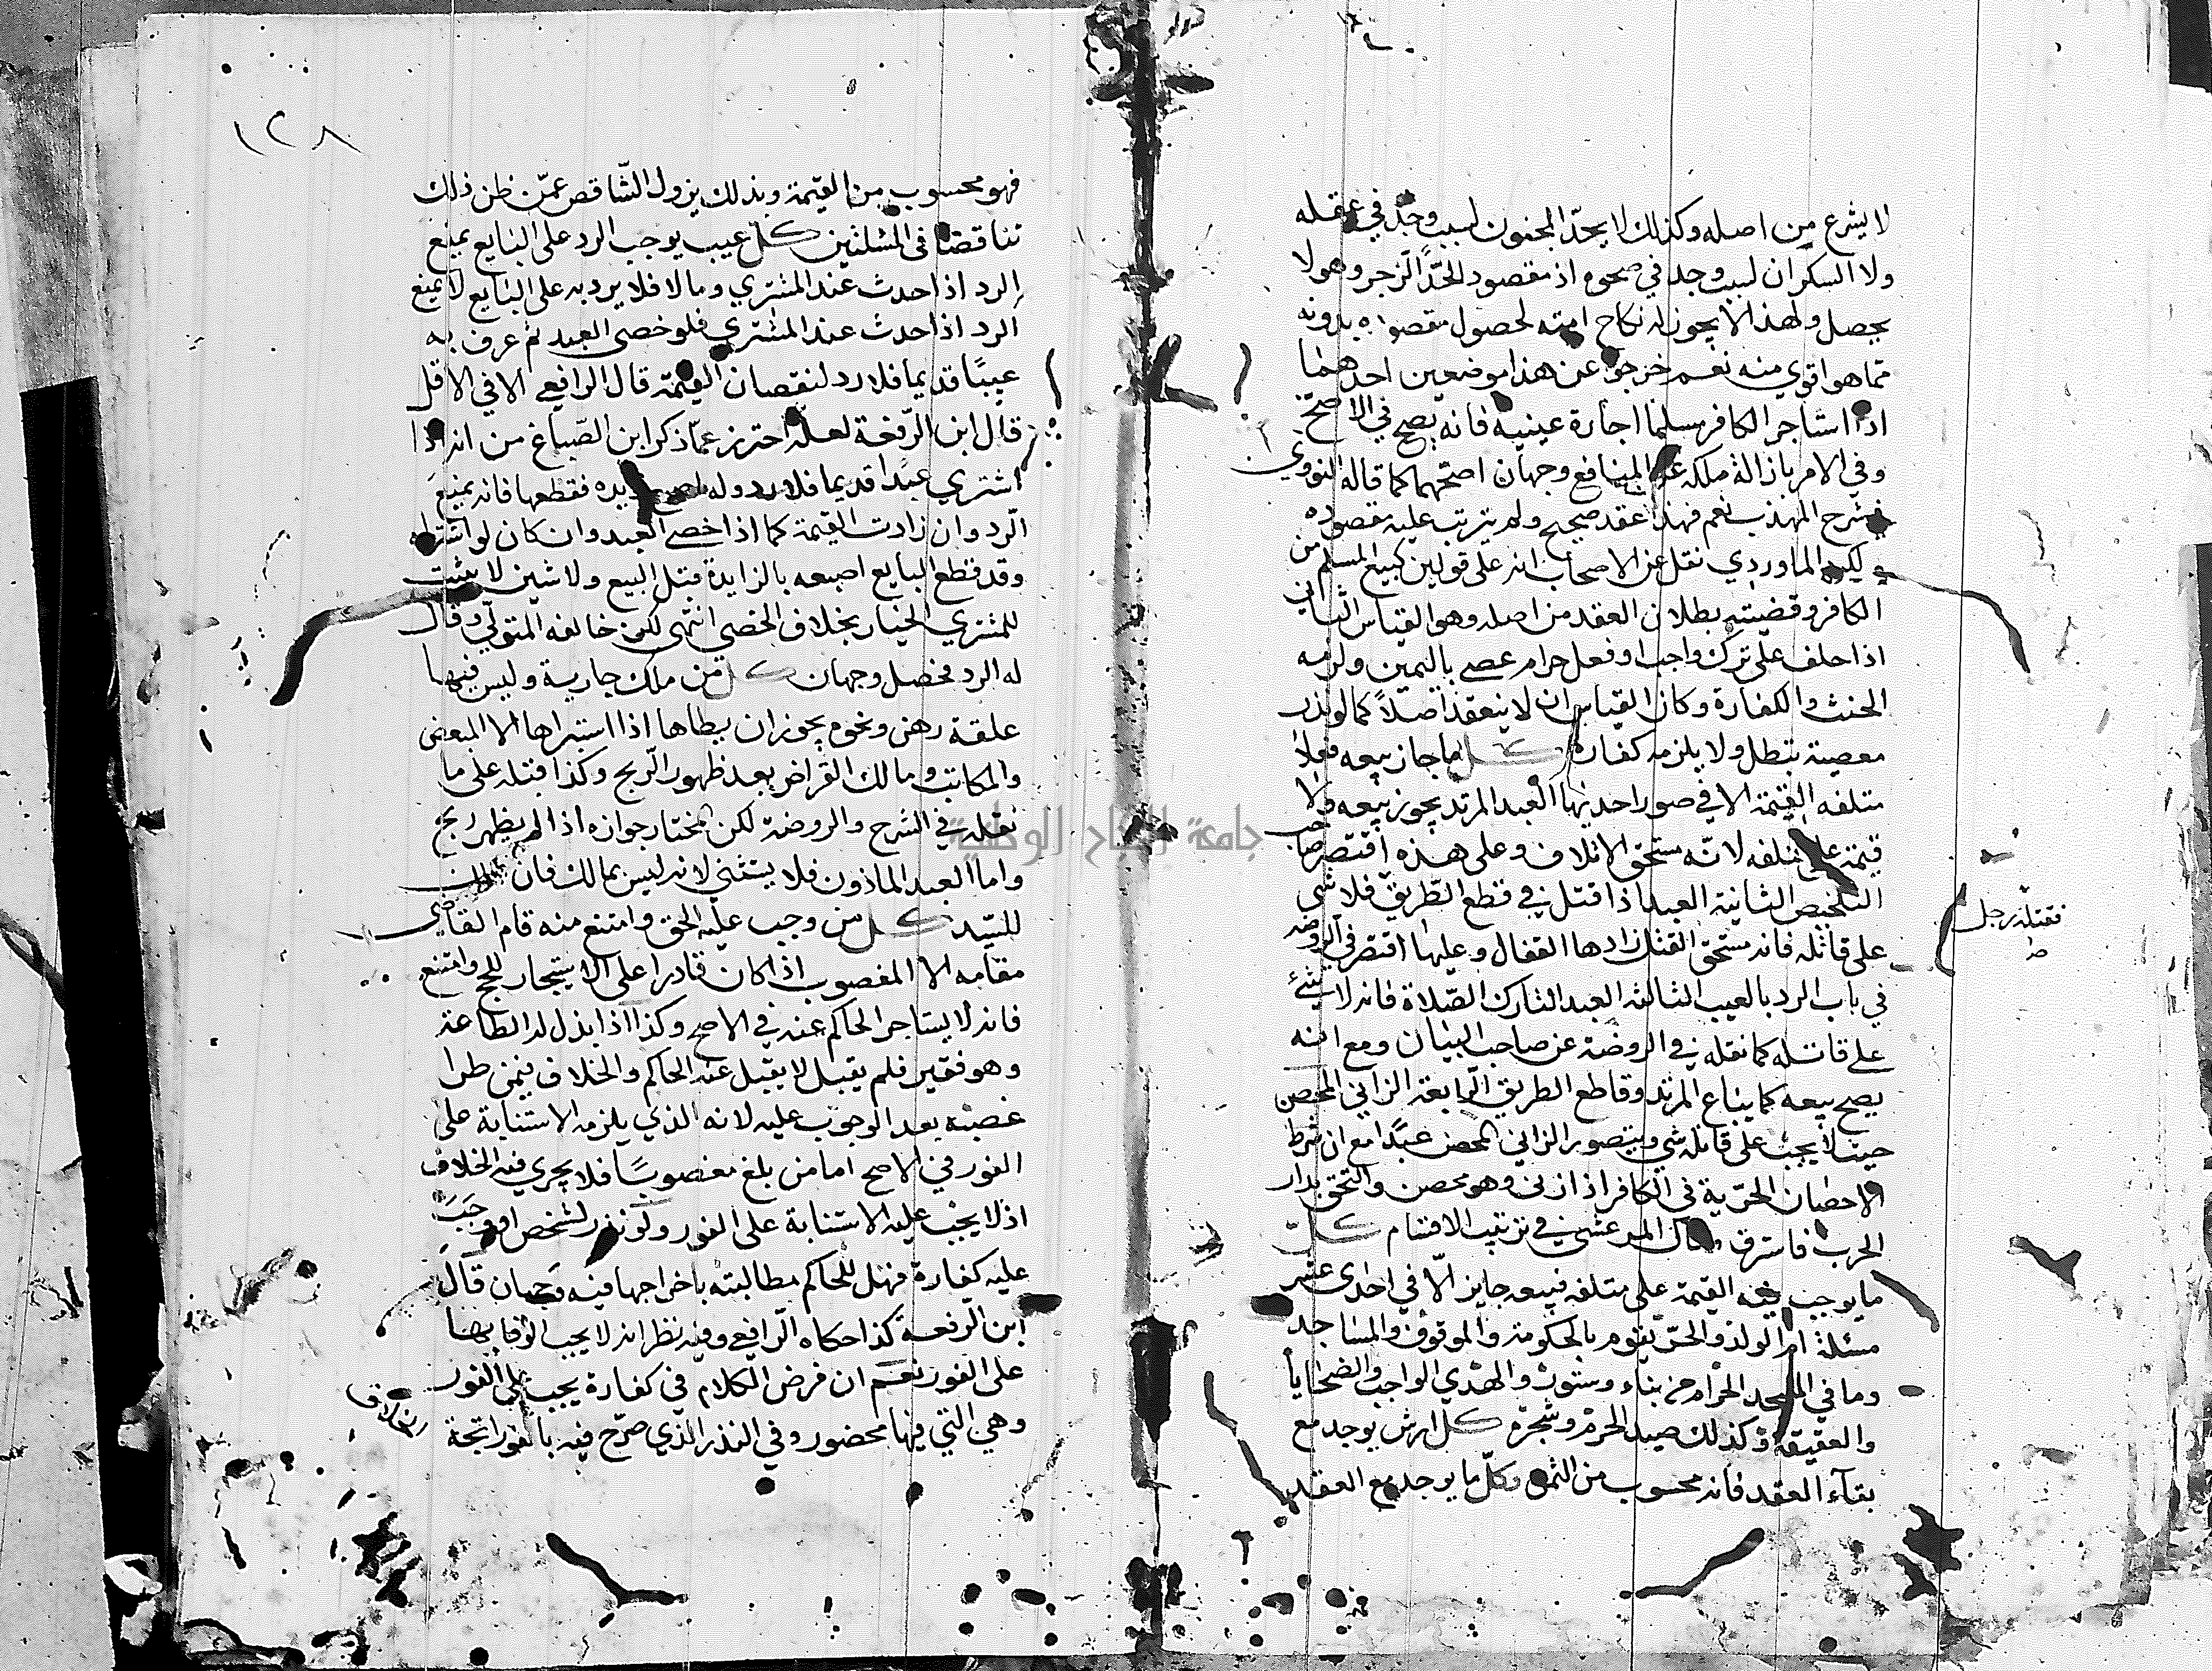 لا يشرع من اصله وكذلك لا يحدّ المجنون لسبب وجد في عقله
ولا السكران لسبب وجد في صحوه اذ مقصود الحدّ الزجر وهو لا
يحصل ولهذا لا يجوز له نكاح امته لحصول مقصوده بدونه
مما هو اقوي منه نعم خرجوا عن هذا موضعين احدهما
اذا استاجر الكافر مسلما اجارة عينية فانه يصح في الاصحّ
وفي الامر بازالة ملكه عن المنافع وجهان اصحهما كما قاله النووي
في شرح المهذب نعم فهذا عقد صحيح ولم يترتب عليه مقصوده
لكن الماوردي نقل عن الاصحاب انه على قولين كبيع المسلم من
الكافر وقضيته بطلان العقد من اصله وهو القياس الثاني
اذا حلف على ترك واجب او فعل حرام عصى باليمين ولزمه
الحنث والكفارة وكان القياس ان لا ينعقد اصلاً كما لو نذر
معصية يبطل ولا يلزمه كفارة كل ما جاز بيعه فعلى
متلفه القيمة الا في صور احديها العبد المرتد يجوز بيعه ولا
قيمة على متلفه لانه مستحق الاتلاف وعلى هذه اقتصر صاحب
التلخيص الثانية العبد اذا قتل في قطع الطريق فلا شي
فقتله رجل صح
على قاتله فانه مستحق القتل زادها القفال وعليها اقتصر في الروضة
في باب الرد بالعيب الثالثة العبد التارك الصلاة فانه لا شئ
على قاتله كما نقله في الروضة عن صاحب البيان ومع انه
يصح بيعه كما يباع المرتد وقاطع الطريق الرابعة الزاني المحصن
حيث لا يجب على قاتله شي ويتصور الزاني المحصن عبدًا مع ان شرط
الاحصان الحرّية في الكافر اذا زنى وهو محصن والتحق بدار
الحرب فاسترق وقال المرعشي في ترتيب الاقسام كل
ما يوجب فيه القيمة على متلفه فبيعه جايز الّا في احدى عشر
مسئلة ام الولد والحرّ يقوم بالحكومة والموقوف والمساجد
وما في المسجد الحرام من بناء وستور والهدي الواجب والضحايا
والعقيقة وكذلك صيد الحرم وشجره كل ارش يوجد مع
بقآء العقد فانه محسوب من الثمن وكلّ ما يوجد مع العقد
١٢٨
فهو محسوب من القيمة وبذلك يزول التناقض عمّن ظن ذلك
تناقضا في المسئلتين كل عيب يوجب الرد على البايع يمنع
الرد اذا حدث عند المشتري وما لا فلا يرد به على البايع لا يمنع
الرد اذا حدث عند المشتري فلو خصى العبد ثم عرف به
عيبًا قديما فلا رد لنقصان القيمة قال الرافعي الا في الاقل
قال ابن الرفعة لعله احترز عمّا ذكر ابن الصباغ من انه اذا
اشتري عبدا قديما فلا رد وله اصبع زايده فقطعها فانه يمنع
الرد وان زادت القيمة كما اذا خصى العبد وان كان لو اشتراه
وقد قطع البايع اصبعه بالزايدة قبل البيع ولا شين لا يثبت
للمشتري الخيار بخلاف الخصي انتهى لكن خالفه المتولّي وقال
له الرد فحصل وجهان كل من ملك جارية وليس فيها
علقة رهن ونحوه يجوز ان يطاها اذا استبراها الا المبعض
والمكاتب ومالك القراض بعد ظهور الربح وكذا قبله على ما
نقله في الشرح والروضة لكن المختار جوازه اذا لم يظهر ربح
واما العبد الماذون فلا يستثني لانه ليس بمالك فان
للسيّد كل من وجب عليه الحق وامتنع منه قام القاضي
مقامه الا المغصوب اذا كان قادرا على الاستيجار للحج وامتنع
فانه لا يستاجر الحاكم عنه في الاصح وكذا اذا بذل له الطاعة
وهو فقير فلم يقبل لا يقبل عنه الحاكم والخلاف فيمن طرا
غصبه بعد الوجوب عليه لانه الذي يلزمه الاستنابة على
الفور في الاصح اما من بلغ مغصوبًا فلا يجري فيه الخلاف
اذ لا يجب عليه الاستنابة على الفور ولو نذر لشخص او وجب
عليه كفارة فهل للحاكم مطالبته باخراجها فيه وجهان قال
ابن الرفعة كذا حكاه الرافعي وفيه نظر انه لا يجب الوفا بها
على الفور نعم ان فرض الكلام في كفارة يجب على الفور
وهي التي فيها محضور وفي النذر الذي صرّح فيه بالفور اتجه
الخلاف
جامعة النجاح الوطنية